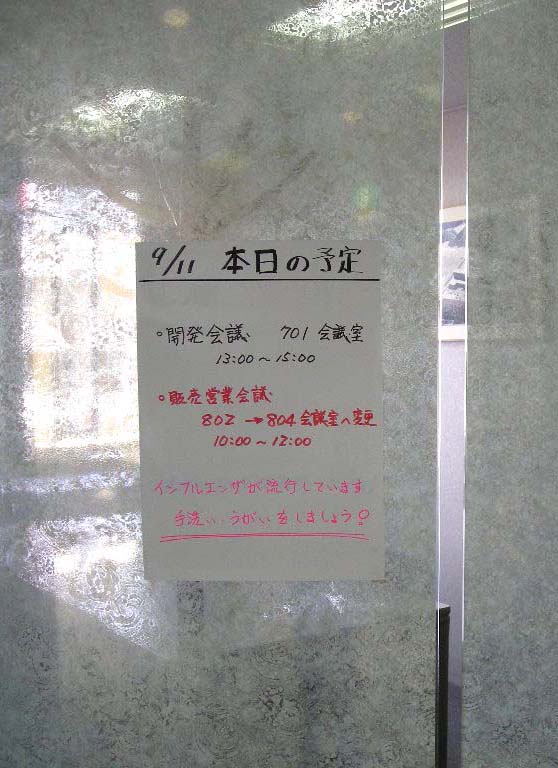 9/11 本日の予定
。開発会議 701 会議室
13:00〜15:00
。販売営業会議
802 →804 会議室へ変更
10:00〜12:00
インフルエンザが流行しています
手洗い、うがいをしましょう!